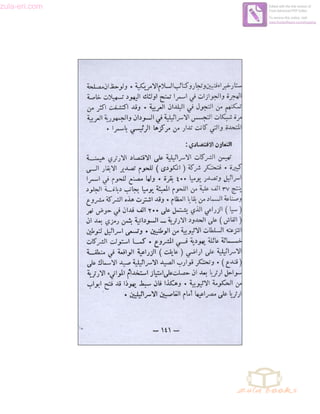 zula-eri.com
Edited with the trial version of
Foxit Advanced PDF Editor
To remove this notice, visit:
www.foxitsoftware.com/shopping
وتجار وكتائب السلام الامريكية ٠ ولوحظ ان مصلحة
الهجرة والجوازات في اسمرا تمنح اولئك اليهود تسهيلات خاصة
تمكنهم من التجول في البلدان العربية ٠ وقد اكتشفت اكثر من
مرة شبكات التجسس الاسرائيلية في السودان والجمهورية العربية
المتحدة والتي كانت تدار من مركزها الرئيسي باسمرا ٠
التعاون الاقتصادي :
تهيمن الشركات الاسرائيلية على الاقتصاد الارتري هيمنة
كبيرة ٠ فتحتكر شركة ( انكودي ) للحوم تصدير الابقار الى
اسرائيل وتصدر يوميا ٤٠٠ بقرة ٠ ولها مصنع للحوم في اسمرا
ينتج الف علبة من اللحوم المعبئة يوميا بجانب دباغة الجلود
وصناعة السماد من بقايا العظام ٠ وقد اشترت هذه الشركة مشروع
( سيا ) الزراعي الذي يشتمل على ٢٠٠ الف فدان في حوض نهر
( القاش ) على الحدود الارترية ــ السودانية بثمن رمزي بعد ان
انتزعته السلطات الاثيوبية من الوطنيين ٠ وتسعى اسرائيل لتوطين
خمسمائة عائلة يهودية في المشروع ٠ كما استولت الشركات
الاسرائيلية على اراضي ( عايلت ) الزراعية الواقعة في منطقة
( قندع ) ٠ وتحتكر قوارب الصيد الاسرائيلية صيد الاسماك على
سواحل ارتريا بعد ان حصلت على امتياز استخدام الموانىء الارترية
من الحكومة الاثيوبية ٠ وهكذا فان سبط يهوذا قد فتح ابواب
ارتريا على مصراعيها أمام الغاصبين الاسرائيليين ٠
— ١٤١ —